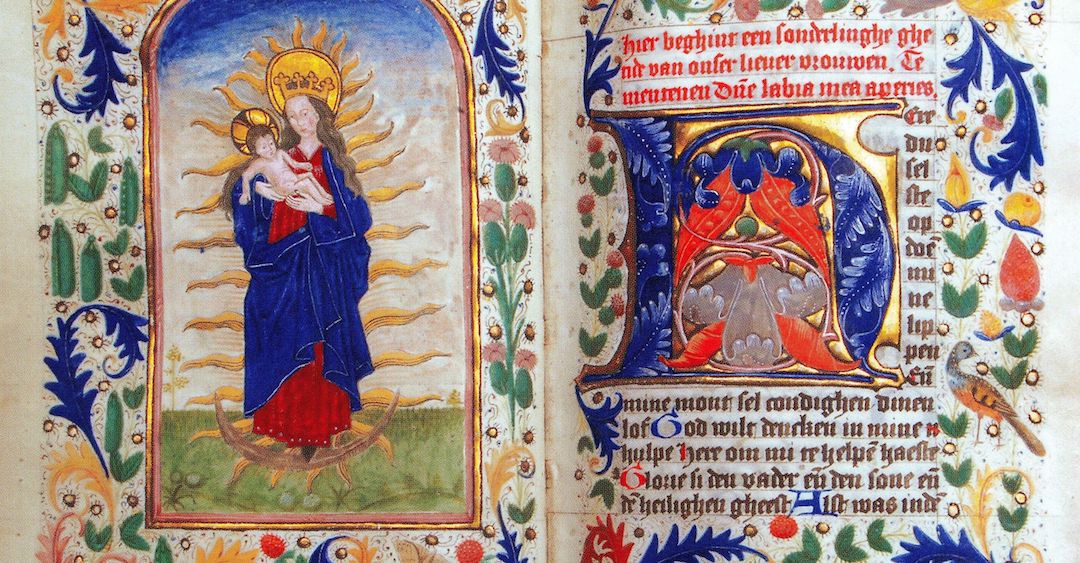 hier beghint een sonderlinghe ghe
tide van onser liever vrouwen. Te
mettenen Dn̄e labia mea aperies.
HEer
du
sel
ste
op
doē
mi
ne
lip
pen
Eñ
mine mont sel condighen dinen
lof God wilt dencken in mine
hulpe Here om mi te helpē haeste
Glorie si den vader eñ den sone eñ
dē heilighen gheest Alst was indē